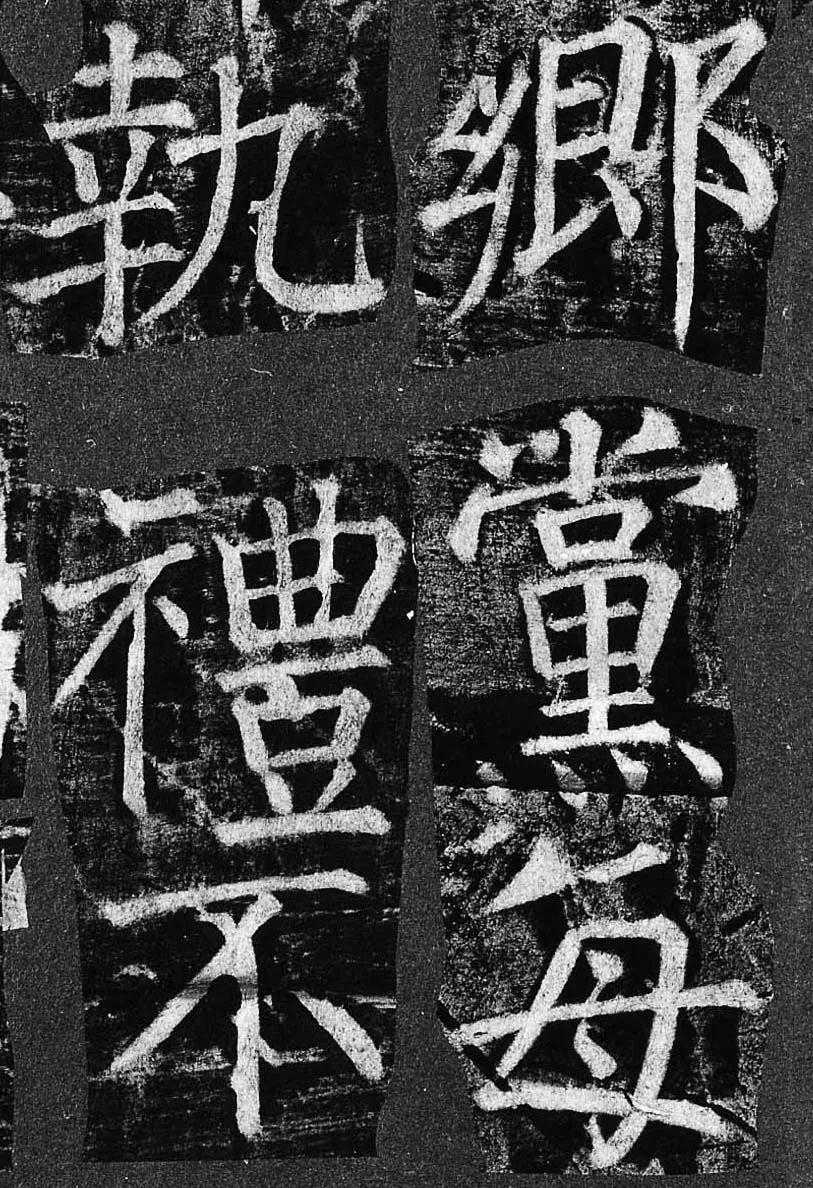 鄉黨每
執禮不